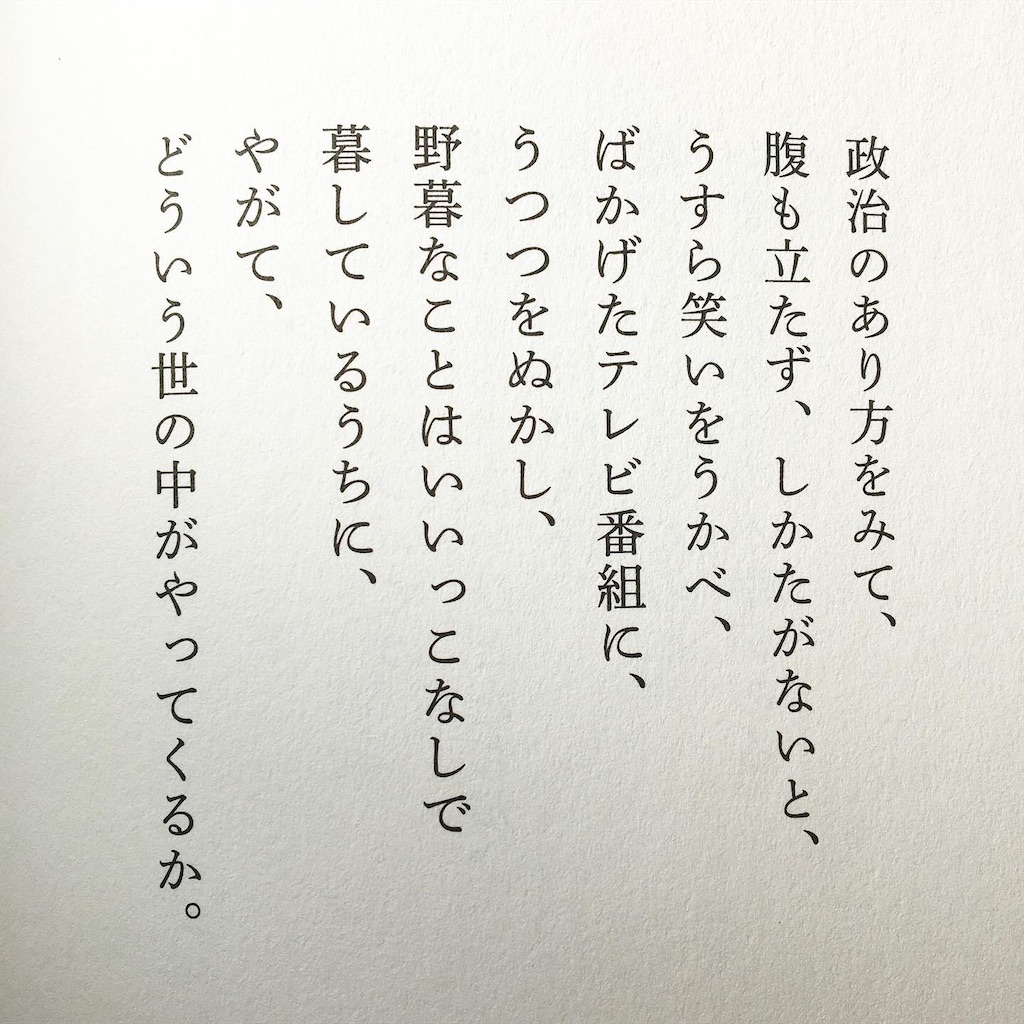 政治のあり方をみて、
腹も立たず、しかたがないと、
うすら笑いをうかべ、
ばかげたテレビ番組に、
うつつをぬかし、
野暮なことはいいっこなしで
暮しているうちに、
やがて、
どういう世の中がやってくるか。